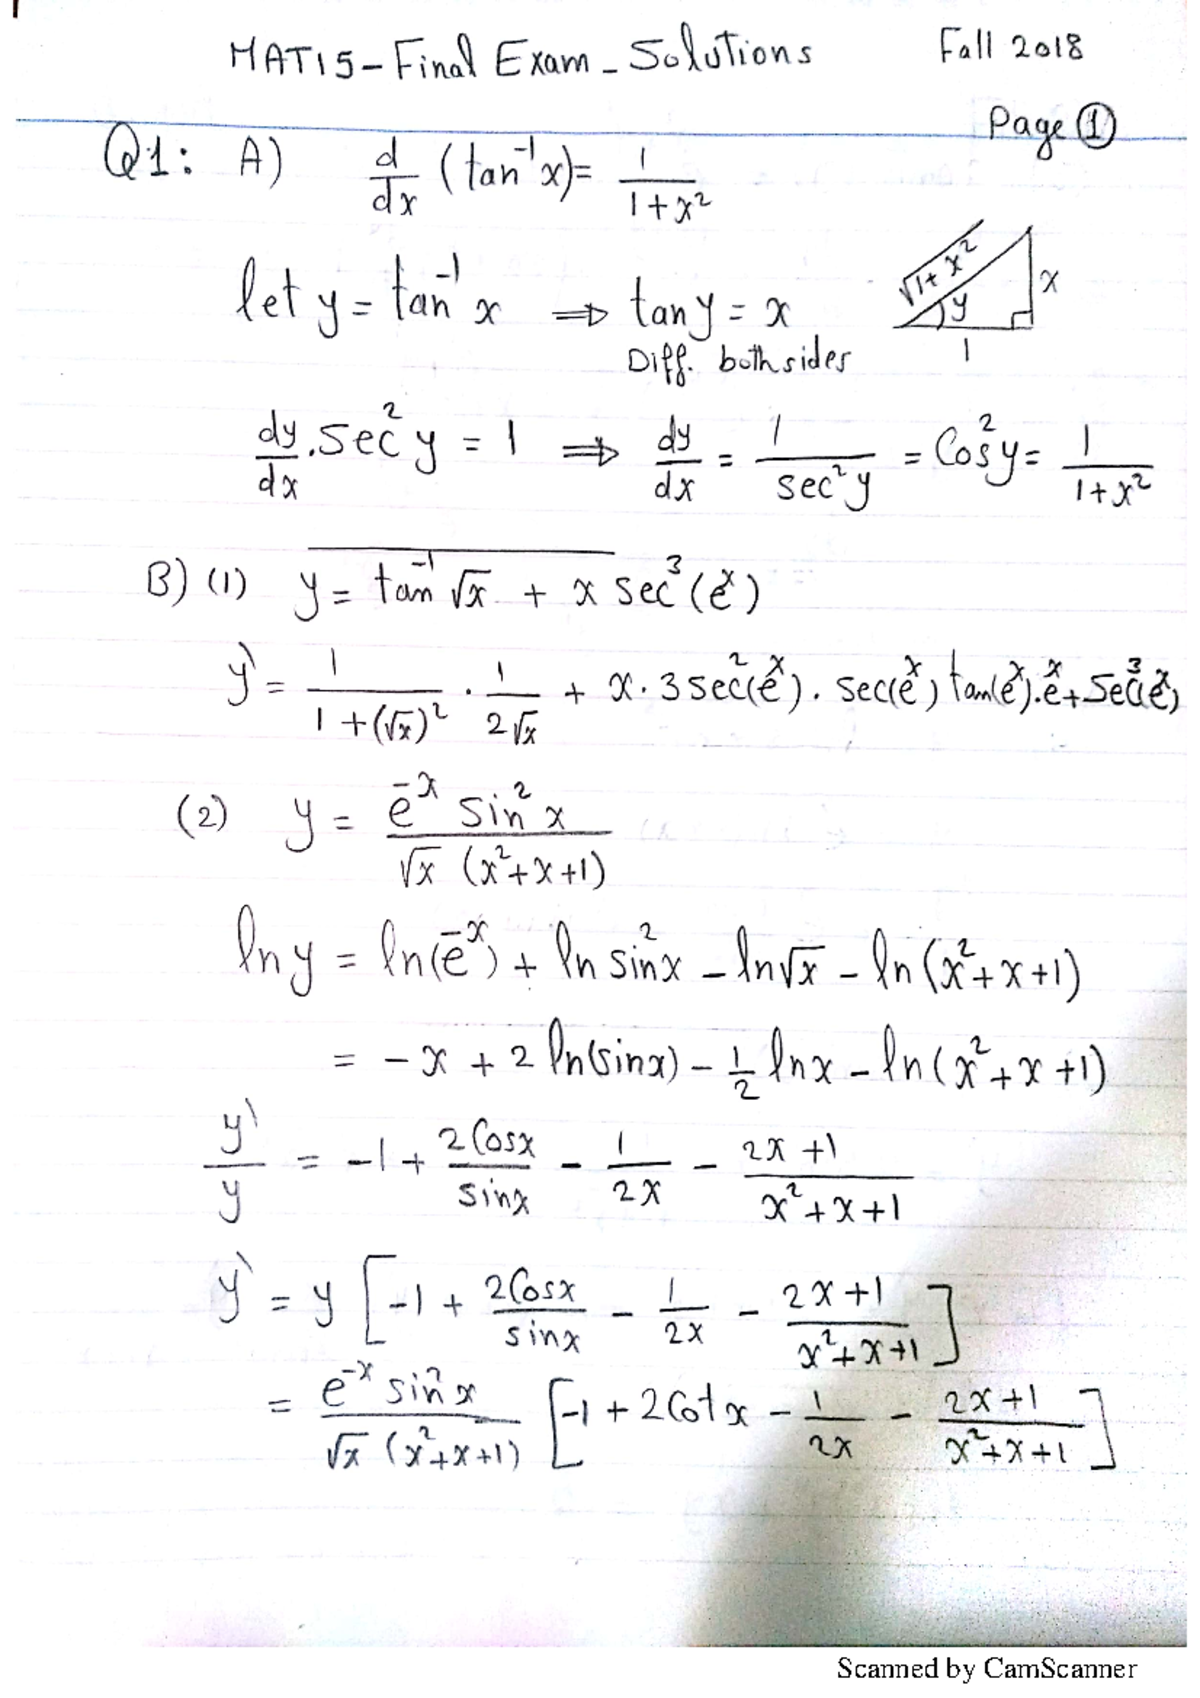 MAT15-Final Exam-Solutions Fall 2018
Page ①
Q1: A) d/dx (tan⁻¹x)= 1/(1+x²)
let y = tan⁻¹ x ⟹ tan y = x
√1+x² y x 1
Diff. both sides
dy/dx . sec² y = 1 ⟹ dy/dx = 1/(sec² y) = Cos² y = 1/(1+x²)
B) (1) y = tan⁻¹ √x + x sec³(eˣ)
y` = 1/(1+(√x)²) · 1/(2√x) + x · 3 sec²(eˣ) · sec(eˣ) tan(eˣ).eˣ + Sec³(eˣ)
(2) y = (e⁻ˣ sin² x)/(√x (x²+x+1))
ln y = ln(e⁻ˣ) + ln sin²x - ln√x - ln (x²+x+1)
= -x + 2 ln(sinx) - 1/2 lnx - ln (x²+x+1)
y`/y = -1 + 2Cosx/sinx - 1/2x - (2x+1)/(x²+x+1)
y` = y [-1 + 2Cosx/sinx - 1/2x - (2x+1)/(x²+x+1)]
= (e⁻ˣ sin² x)/(√x (x²+x+1)) [-1 + 2Cot x - 1/2x - (2x+1)/(x²+x+1)]
Scanned by CamScanner